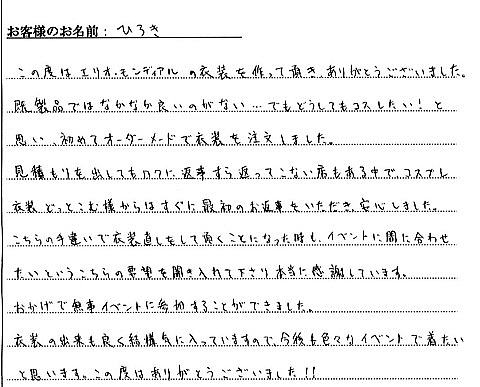 お客様のお名前： ひろき
この度はエリオ・モンディアルの衣装を作って頂き、ありがとうございました。
既製品ではなかなか良いのがない…でもどうしてもコスしたい！と
思い、初めてオーダーメードで衣装を注文しました。
見積もりを出してもロクに返事すら返ってこない店もある中で、コスプレ
衣装どっとこむ様からはすぐに最初のお返事をいただき、安心しました。
こちらの手違いで衣装直しをして頂くことになった時も、イベントに間に合わせ
たいというこちらの要望を聞き入れて下さり本当に感謝しています。
おかげで無事イベントに参加することができました。
衣装の出来も良く結構気に入っていますので、今後も色々なイベントで着たい
と思います。この度はありがとうございました!!